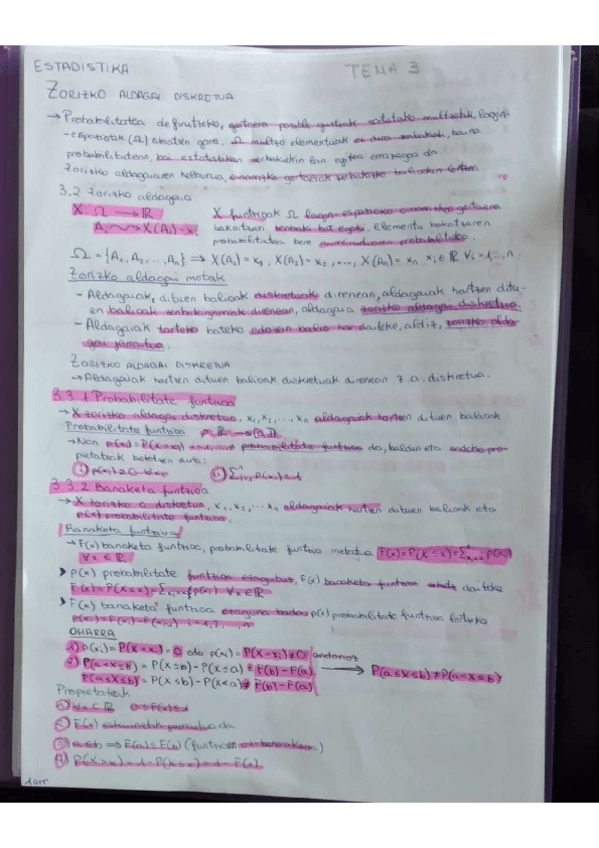 ESTADISTIKA TEMA 3
ZORIZKO ALDAGAI DISKRETUA
→ Probabilitatea definitzeko, gertaera posible guztiak osatutako multzotik, lagin-
-espaziotik (Ω) abiatzen gara. Ω multzo elementuak ez dira zenbakiak, baina
probabilitatean, eta estatistikan zenbakiekin lan egitea errazagoa da.
Zorizko aldagaiaren helburua, oinarrizko gertaerak zenbakizko balioekin lotzea.
3.2 Zorizko aldagaia
X: Ω → ℝ X funtzioak Ω lagin-espazioko oinarrizko gertaera
Aᵢ ⇝ X(Aᵢ)=xᵢ bakoitzari zenbaki bat
Elementu bakoitzaren
probabilitatea bere probabilitatea.
Ω = {A₁, A₂, ..., Aₙ} ⇒ X(A₁) = x₁, X(A₂) = x₂, ..., X(Aₙ) = xₙ xᵢ ∈ ℝ ∀ᵢ = 1, ..., n
Zorizko aldagai motak
- Aldagaiak, dituen balioak diskretuak direnean, aldagaiak hartzen ditu-
en balioak zenbakigarriak direnean, aldagaia zorizko aldagai diskretua.
- Aldagaiak tarteko bateko edozein balio har daiteke, aldiz, zorizko alda-
gai jarraitua.
ZORIZKO ALDAGAI DISKRETUA
→ Aldagaiak hartzen dituen balioak diskretuak direnean z.a. diskretua.
3.3.1 Probabilitate funtzioa
→ X zorizko aldagai diskretua, x₁, x₂, ..., xₙ aldagaiak hartzen dituen balioak
Probabilitate funtzioa p: ℝ → [0,1]
→ Non p(xᵢ) = P(X=xᵢ) probabilitate funtzioa da, baldin eta ondoko pro-
pietateak betetzen ditu:
① p(xᵢ) ≥ 0 ∀xᵢ ② Σⁿᵢ₌₁ p(xᵢ) = 1
3.3.2 Banaketa funtzioa
→ X zorizko a. diskretua, x₁, x₂, ... xₙ aldagaiak hartzen dituen balioak eta
p(x) probabilitate funtzioa.
Banaketa funtzioa
→ F(x) banaketa funtzioa, probabilitate funtzio metatua F(x) = P(X ≤ x) = Σ p(xᵢ)
∀x ∈ ℝ
> p(x) probabilitate funtzioa ezagutuz, F(x) banaketa funtzioa daiteke
F(x) = P(X≤x) = Σ p(xᵢ) ∀x ∈ ℝ
> F(x) banaketa funtzioa ezaguna bada, p(x) probabilitate funtzioa
i = 1, 2, ..., n
OHARRA
1) p(xᵢ) = P(X=xᵢ) = 0 edo p(xᵢ) = P(X=xᵢ) ≠ 0
2) P(a<X≤b) = P(X≤b) - P(X≤a) = F(b) - F(a) ondorioz → P(a≤X≤b) ≠ P(a<X≤b)
P(a≤X≤b) = P(X≤b) - P(X<a) ≠ F(b) - F(a)
Propietateak
① ∀x ∈ ℝ 0 ≤ F(x) ≤ 1
② F(x) da.
③ a≤b ⇒ F(a) ≤ F(b) (funtzioa )
④ P(X>x) = 1 - P(X≤x) = 1 - F(x).